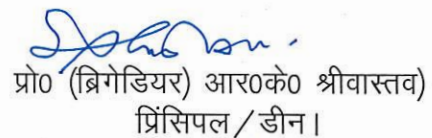 प्रो0 (ब्रिगेडियर) आर0के0 श्रीवास्तव)
प्रिंसिपल / डीन।